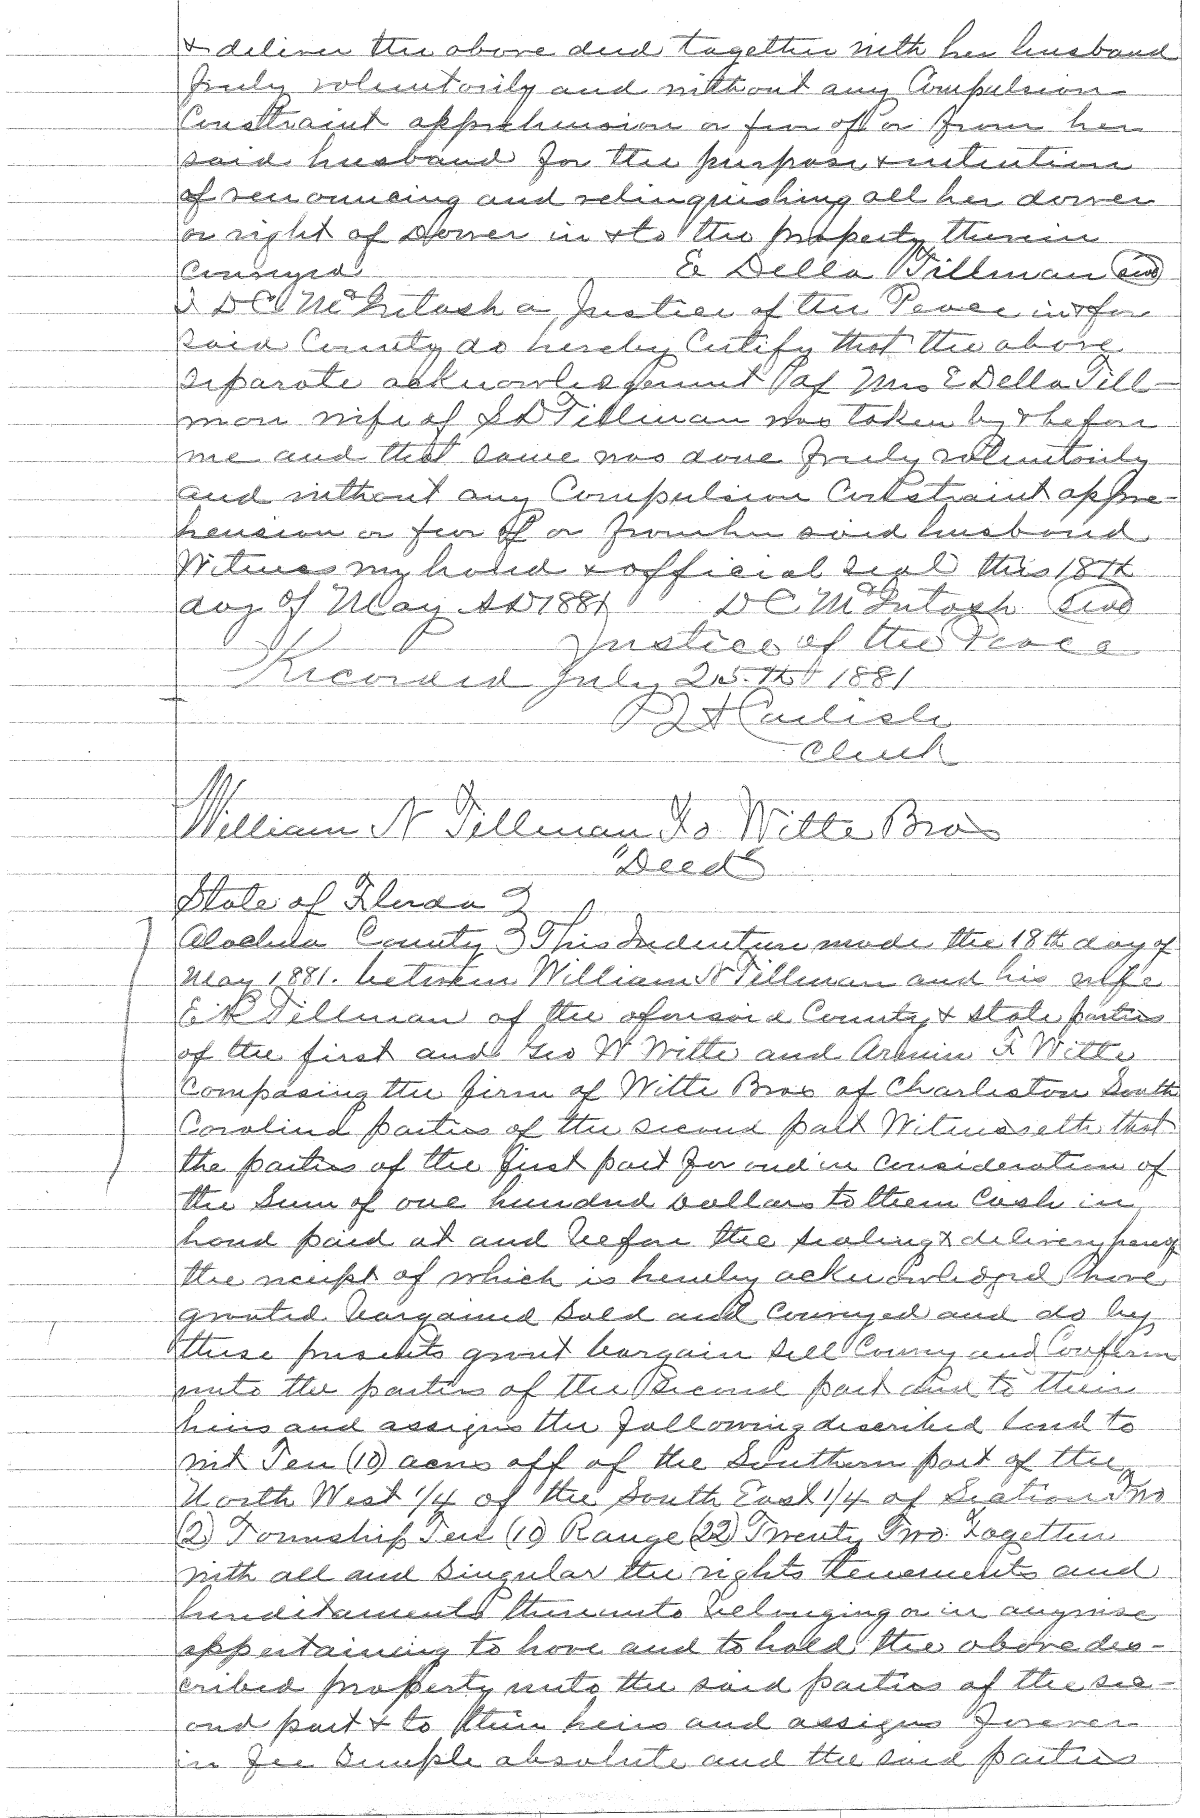 & deliver the above deed together with her husband
freely voluntarily and without any Compulsion
Constraint apprehension or fear of or from her
said husband for the purpose & intention
of renouncing and relinquishing all her dower
or right of Dower in & to the property therein
conveyed E Della Tillman seal
I D C McIntosh a Justice of the Peace in & for
said County do hereby Certify that the above
separate acknowledgement of Mrs E Della Till-
man wife of S D Tillman was taken by & before
me and that same was done freely voluntarily
and without any Compulsion Constraint appre-
hension or fear of or from her said husband
Witness my hand & official seal this 18th
day of May AD 1881 D C McIntosh seal
Justice of the Peace
Recorded July 25th 1881
Carlisle
Clerk
William N Tillman To Witte Bros
"Deed"
State of Florida }
Alachua County } This Indenture made the 18th day of
May 1881. between William N Tillman and his wife
E R Tillman of the aforesaid County & State parties
of the first and Geo W Witte and Armin F Witte
Composing the firm of Witte Bros of Charleston South
Carolina parties of the second part Witnesseth that
the parties of the first part for and in consideration of
the Sum of one hundred Dollars to them Cash in
hand paid at and before the sealing & delivery hereof
the receipt of which is hereby acknowledged have
granted bargained Sold and Conveyed and do by
these presents grant bargain Sell Convey and Confirm
unto the parties of the Second part and to their
heirs and assigns the following described land to
wit Ten (10) acres off of the Southern part of the
North West 1/4 of the South East 1/4 of Section Two
(2) Township Ten (10) Range (22) Twenty Two. Together
with all and Singular the rights tenements and
hereditaments thereunto belonging or in anywise
appertaining to have and to hold the above des-
cribed property unto the said parties of the sec-
ond part & to their heirs and assigns forever
in fee Simple absolute and the said parties